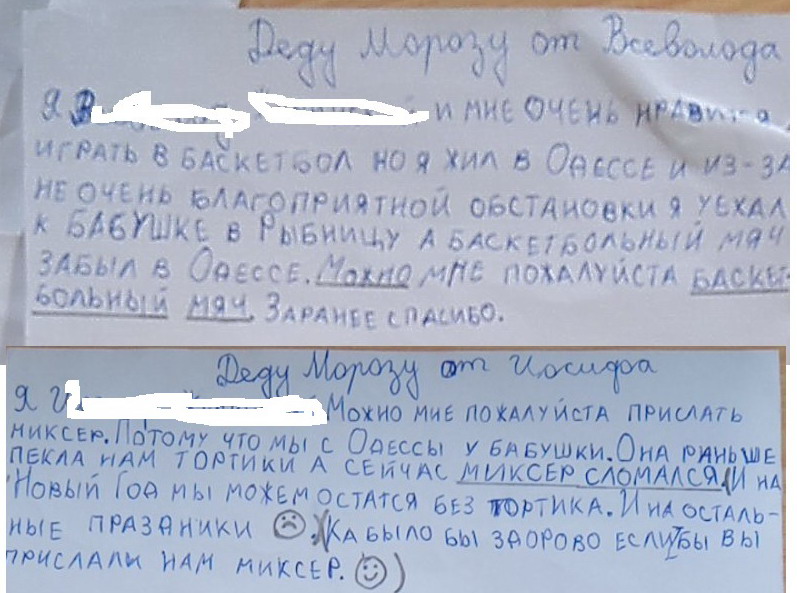 Деду Морозу от Всеволода
Я и мне очень нравится
играть в баскетбол но я жил в Одессе и из-за
не очень благоприятной обстановки я уехал
к бабушке в Рыбницу а баскетбольный мяч
забыл в Одессе. Можно мне пожалуйста баскет-
больный мяч. Заранее спасибо.
Деду Морозу от Иосифа
Я И Можно мне пожалуйста прислать
миксер. Потому что мы с Одессы у бабушки. Она раньше
пекла нам тортики а сейчас миксер сломался. И на
Новый Год мы можем остатся без тортика. И на осталь-
ные празаники ☹. Ка было бы здорово если бы вы
прислали нам миксер. ☺)